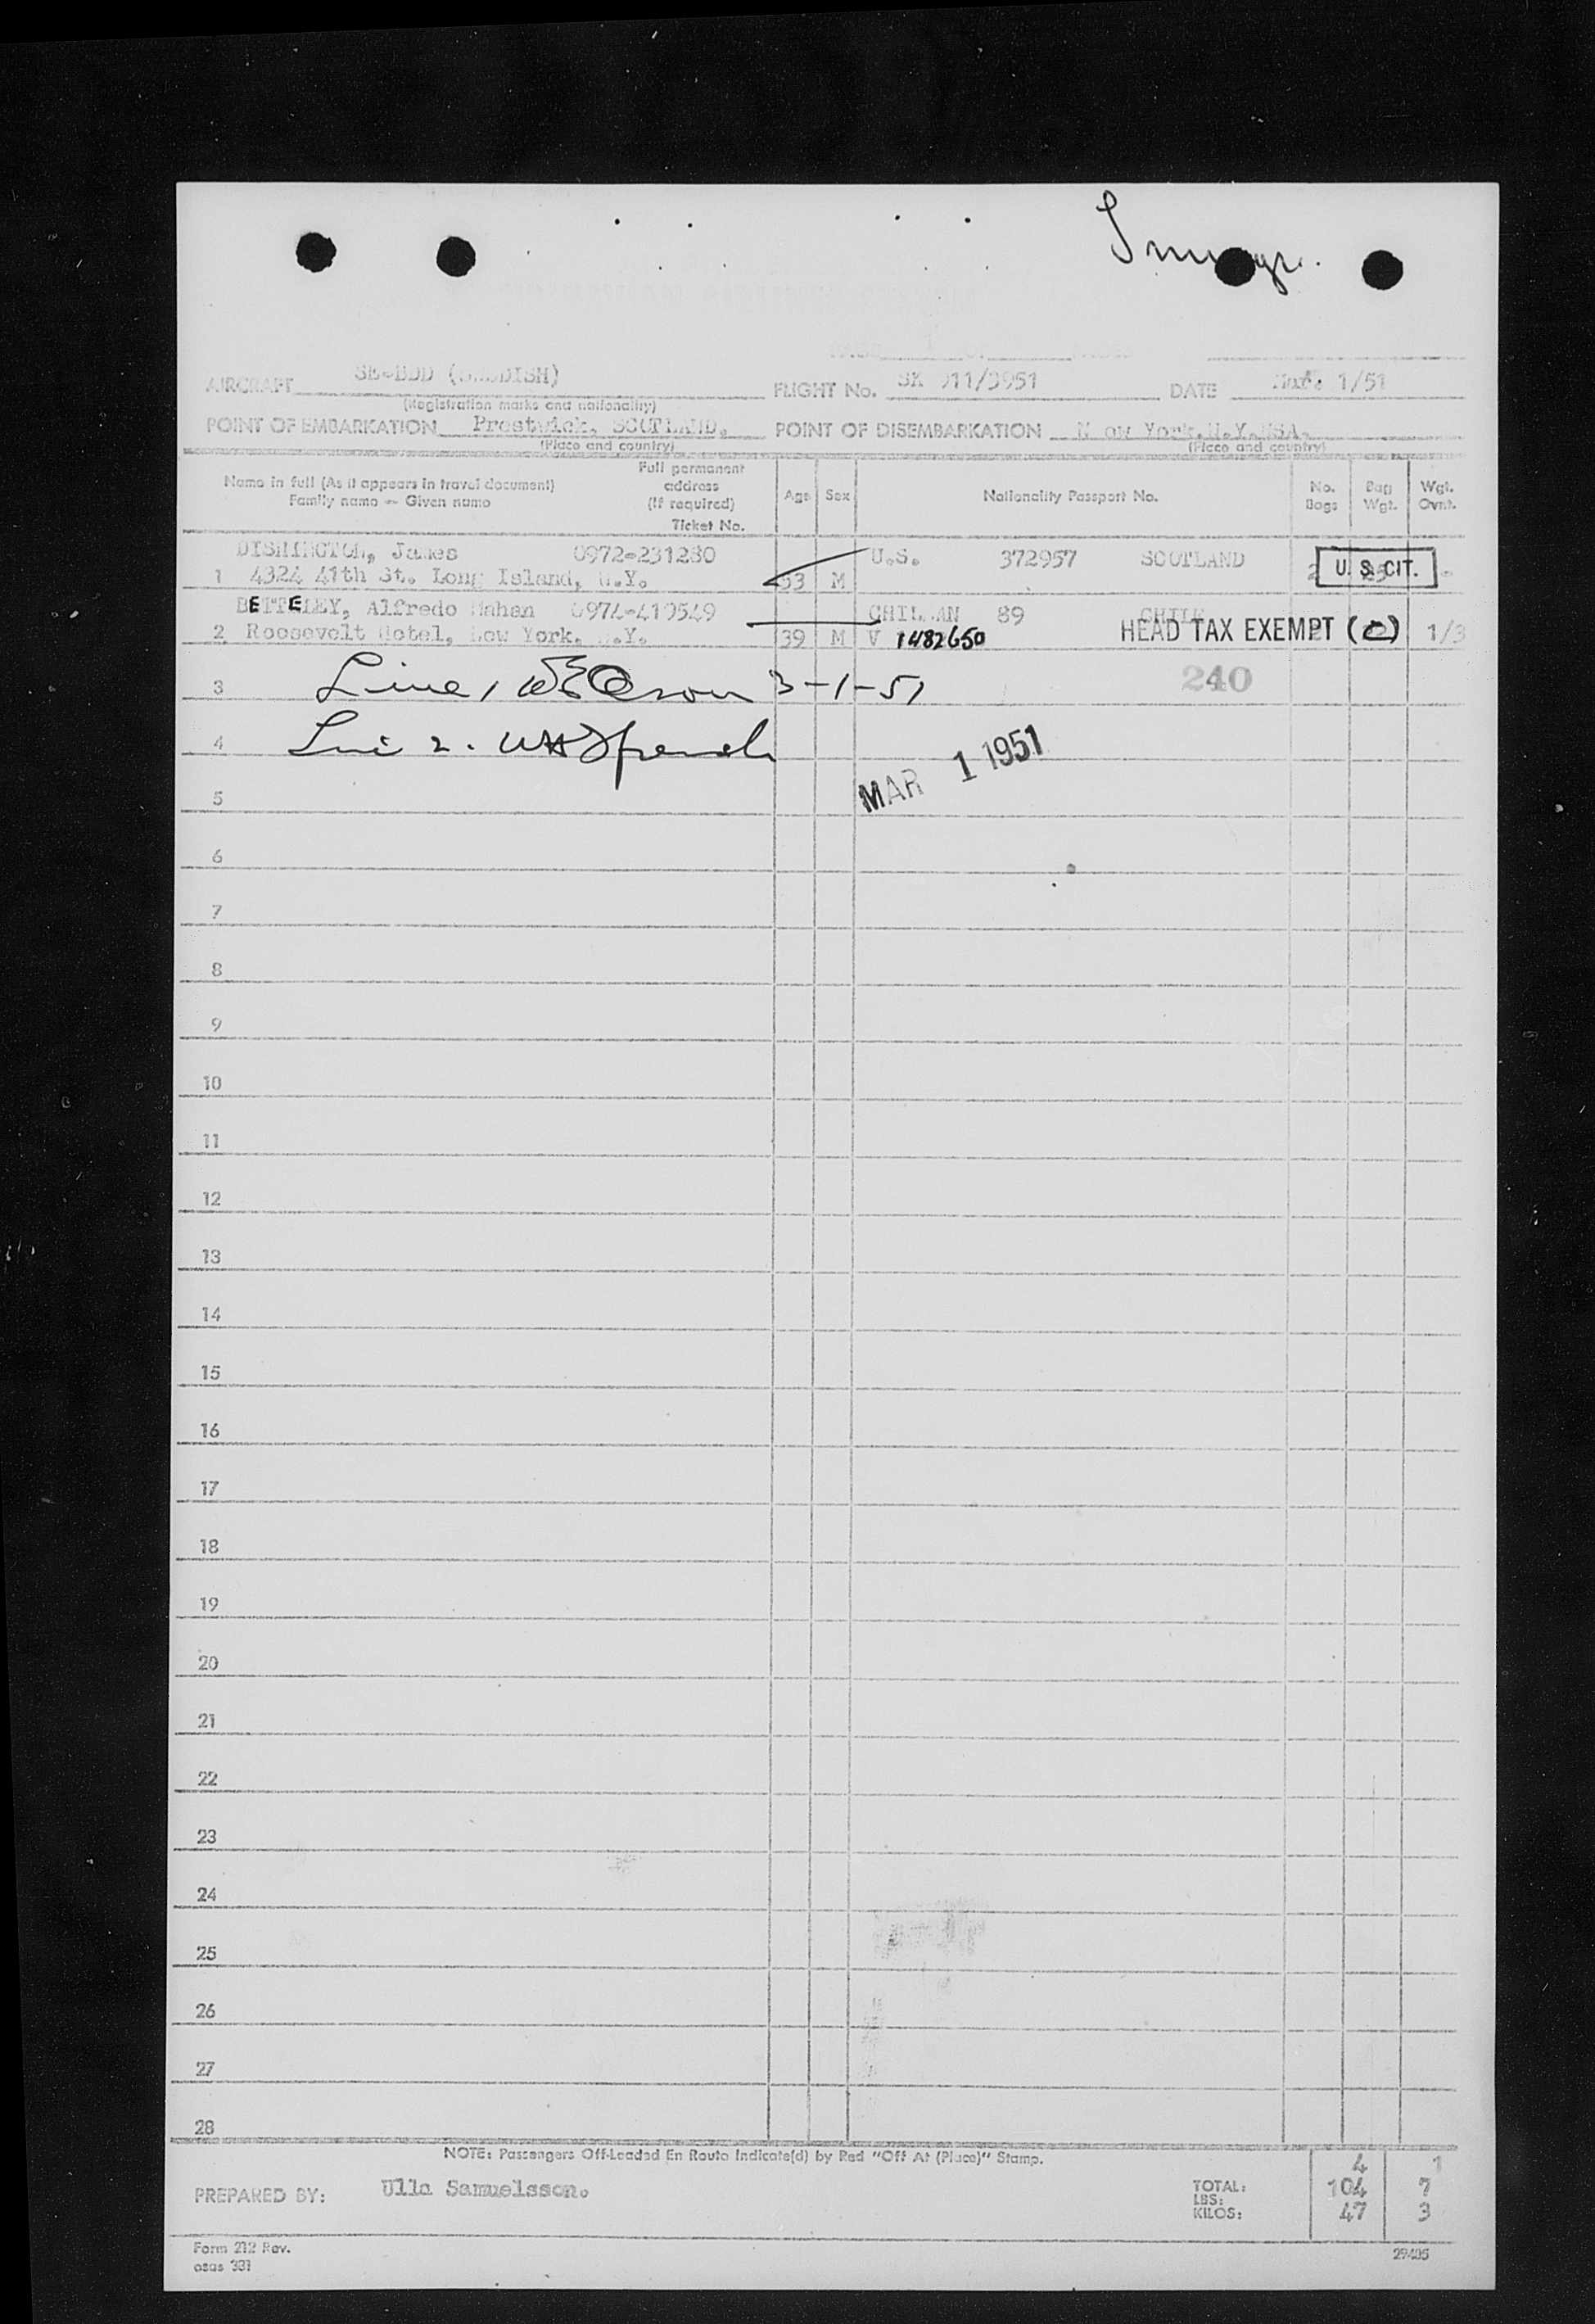 AIRCRAFT SE-BDD (SWEDISH) FLIGHT No. SK 911/3951 DATE Mar. 1/51
(Registration marks and nationality)
POINT OF EMBARKATION Prestwick, SCOTLAND. POINT OF DISEMBARKATION N ew York.N.Y.USA.
(Place and country) (Place and country)
Name in full (As it appears in travel document)
Family name — Given name
Full permanent
address
(If required)
Ticket No.
Age Sex Nationality Passport No. No. Bags Bag Wgt. Wgt. Ovnt.
DISHINGTON, James 0972-231280 U.S. 372957 SCOTLAND
1 4324 41th St. Long Island, N.Y. 53 M 2 U. S. CIT. -
BETTELEY, Alfredo Mahan 0974-419549 CHILEAN 89 CHILE
2 Roosevelt Hotel, New York. N.Y. 39 M V 1482650 HEAD TAX EXEMPT ( ) 1/3
3 Line 1 3-1-51 240
4 Line 2.
MAR 1 1951
5
6
7
8
9
10
11
12
13
14
15
16
17
18
19
20
21
22
23
24
25
26
27
28
NOTE: Passengers Off-Loaded En Route Indicate(d) by Red "Off At (Place)" Stamp.
4 1
PREPARED BY: Ulla Samuelsson.
TOTAL: 104 7
LBS:
KILOS: 47 3
Form 212 Rev.
osas 331
29405